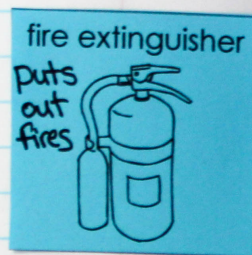 fire extinguisher
puts
out
fires